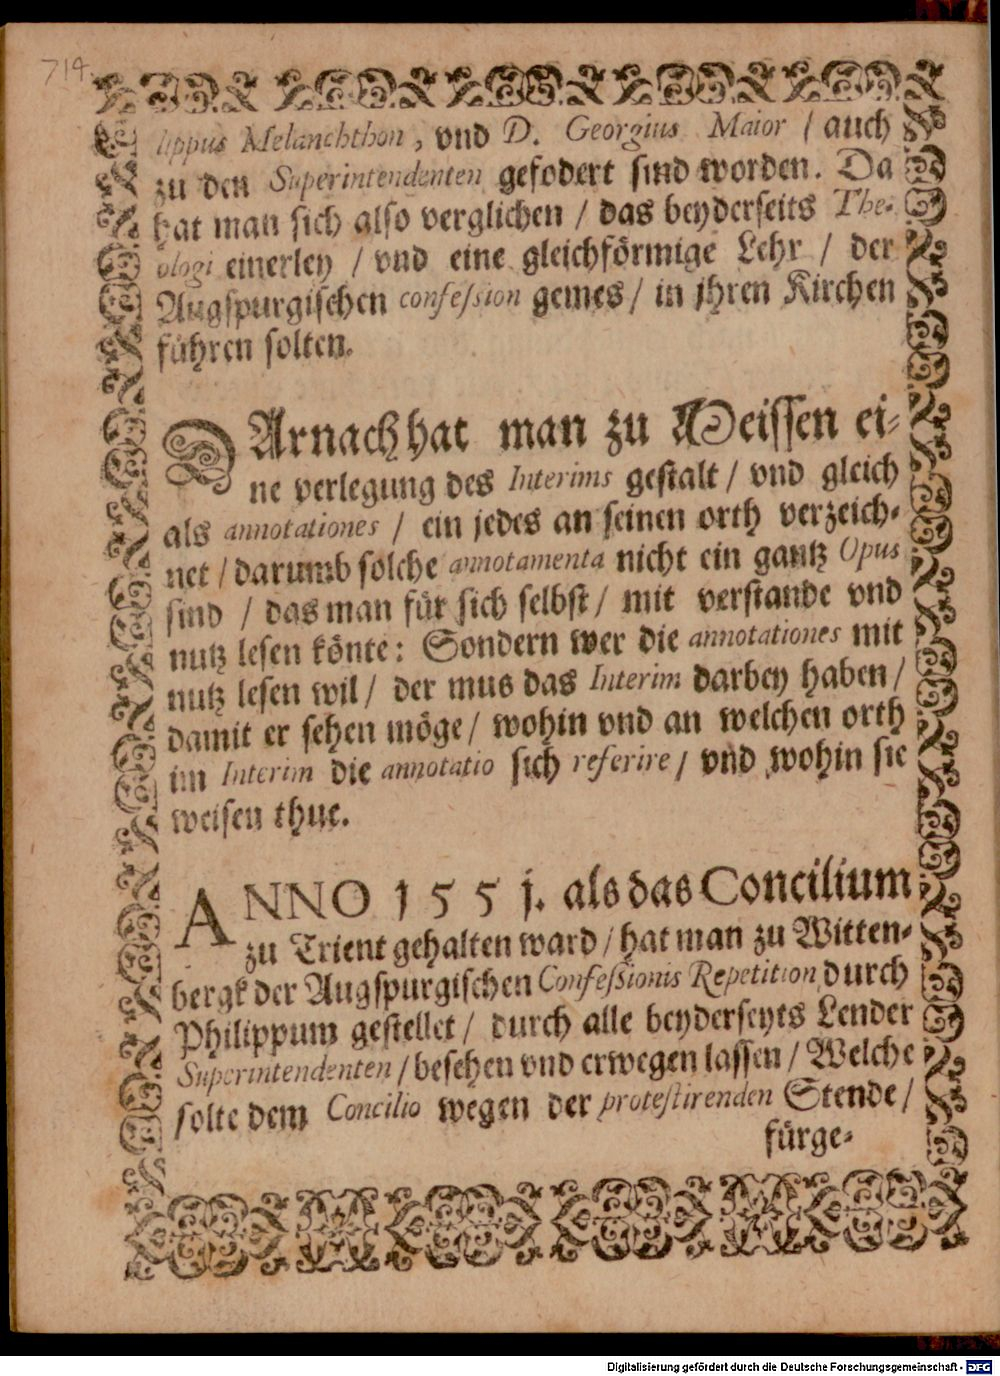 714.
lippus Melanchthon, vnd D. Georgius Maior / auch
zu den Superintendenten gefodert sind worden. Da
hat man sich also verglichen / das beyderseits The-
ologi einerley / vnd eine gleichförmige Lehr / der
Augspurgischen confession gemes / in jhren Kirchen
führen solten.
DArnach hat man zu Meissen ei-
ne verlegung des Interims gestalt / vnd gleich
als annotationes / ein jedes an seinen orth verzeich-
net / darumb solche annotamenta nicht ein gantz Opus
sind / das man für sich selbst / mit verstande vnd
nutz lesen könte: Sondern wer die annotationes mit
nutz lesen wil / der mus das Interim darbey haben /
damit er sehen möge / wohin vnd an welchen orth
im Interim die annotatio sich referire / vnd wohin sie
weisen thue.
ANNO 155j. als das Concilium
zu Trient gehalten ward / hat man zu Witten-
bergk der Augspurgischen Confessionis Repetition durch
Philippum gestellet / durch alle beyderseyts Lender
Superintendenten / besehen vnd erwegen lassen / Welche
solte dem Concilio wegen der protestirenden Stende /
fürge-
Digitalisierung gefördert durch die Deutsche Forschungsgemeinschaft - DFG